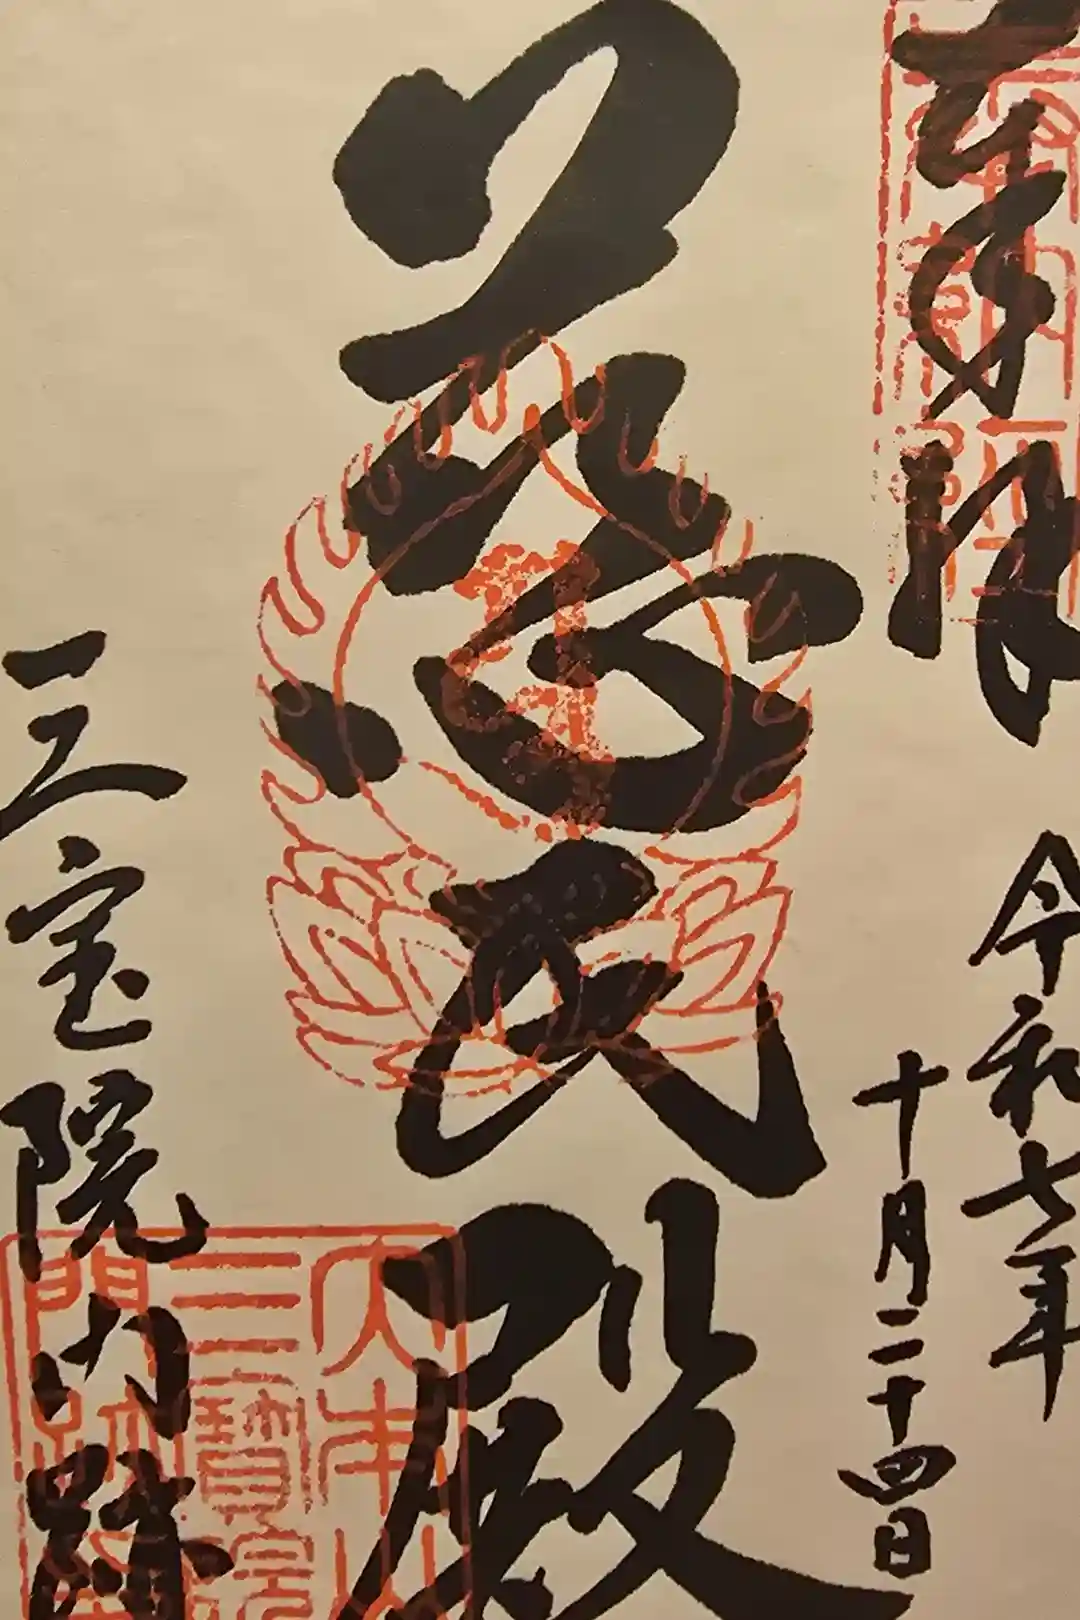 奉拝
令和七年
十月二十四日
慈氏殿
三宝院門跡
大本山
三寳院
門跡